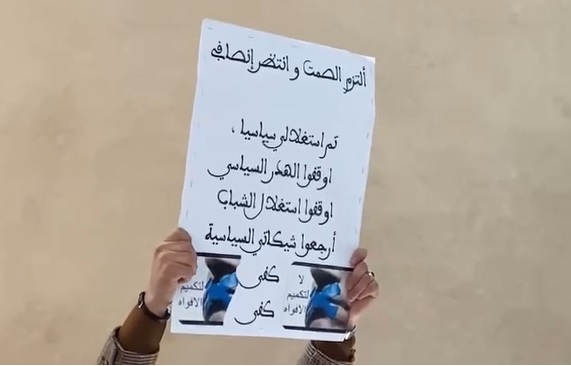 ألتزم الصمت و انتظر إنصافي
تم استغلالي سياسيا ،
اوقفوا الهدر السياسي
اوقفوا استغلال الشباب
أرجعوا شيكاتي السياسية
كفى
كفى
لا
لتكميم
الافواه
لتكميم
الافواه